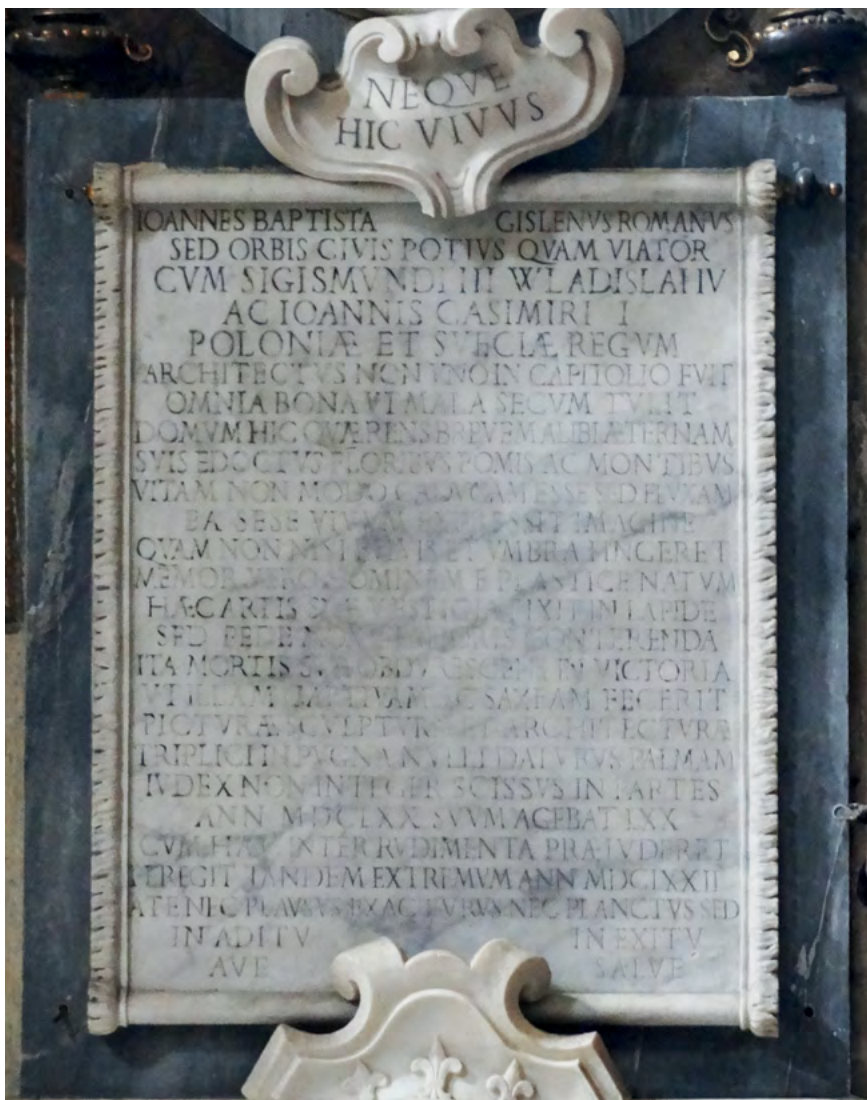 NEQVE
HIC VIVVS
IOANNES BAPTISTA GISLENVS ROMANVS
SED ORBIS CIVIS POTIVS QVAM VIATOR
CVM SIGISMVNDI III WLADISLAI IV
AC IOANNIS CASIMIRI I
POLONIÆ ET SVECIÆ REGVM
ARCHITECTVS NON VNO IN CAPITOLIO FVIT
OMNIA BONA VT MALA SECVM TVLIT
DOMVM HIC QVÆRENS BREVEM ALIBI ÆTERNAM
SVIS EDOCTVS FLORIBVS POMIS AC MONTIBVS
VITAM NON MODO CADVCAM ESSE SED FLVXAM
EA SESE VIVVM EXPRESSIT IMAGINE
QVAM NON NISI ET VMBRA FINGERET
MEMOR VERO HOMINEM E PLASTICE NATVM
HÆC ARTIS SVÆ VESTIGIA FIXIT IN LAPIDE
SED PEDE CONTERENDA
ITA MORTIS IN VICTORIA
VT ILLAM CAPTIVAM AC SAXEAM FECERIT
PICTVRÆ SCVLPTVRÆ ET ARCHITECTVRÆ
TRIPLICI IN PVGNA NVLLI DATVRVS PALMAM
IVDEX NON INTEGER SCISSVS IN PARTES
ANN MDCLXX SVVM AGEBAT LXX
CVM INTER RVDIMENTA PRÆLVDERET
PEREGIT TANDEM EXTREMVM ANN MDCLXXII
A TE NEC PLAVSVS EXACTVRVS NEC PLANCTVS SED
IN ADITV IN EXITV
AVE SALVE